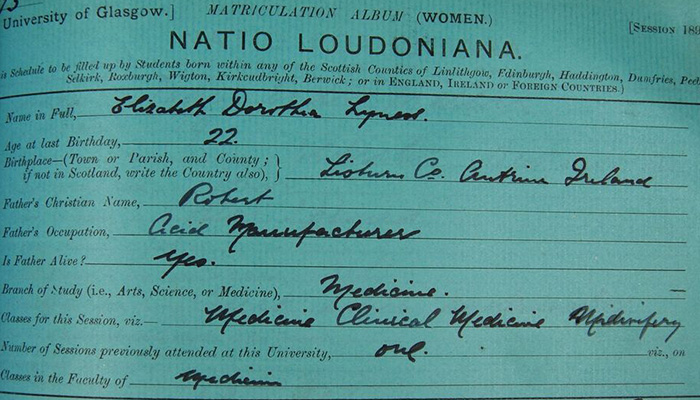 University of Glasgow.] MATRICULATION ALBUM (WOMEN.)
[SESSION 189
NATIO LOUDONIANA.
is Schedule to be filled up by Students born within any of the Scottish Counties of Linlithgow, Edinburgh, Haddington, Dumfries, Peeb
Selkirk, Roxburgh, Wigton, Kirkcudbright, Berwick; or in ENGLAND, IRELAND OR FOREIGN COUNTRIES.)
Name in Full, Elizabeth Dorothea Lyness.
Age at last Birthday, 22.
Birthplace—(Town or Parish, and County;
if not in Scotland, write the Country also), } Lisburn Co. Antrim Ireland
Father's Christian Name, Robert
Father's Occupation, Acid Manufacturer
Is Father Alive? Yes.
Branch of Study (i.e., Arts, Science, or Medicine), Medicine.
Classes for this Session, viz.— Medicine Clinical Medicine Midwifery
Number of Sessions previously attended at this University, one. viz., on
Classes in the Faculty of Medicine